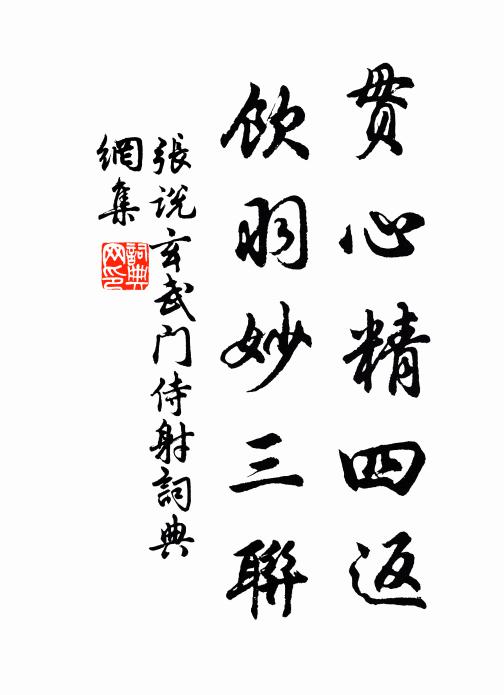 贯心精四返
饮羽妙三聯
張说玄武门侍射詞典
網集
詞典
网印